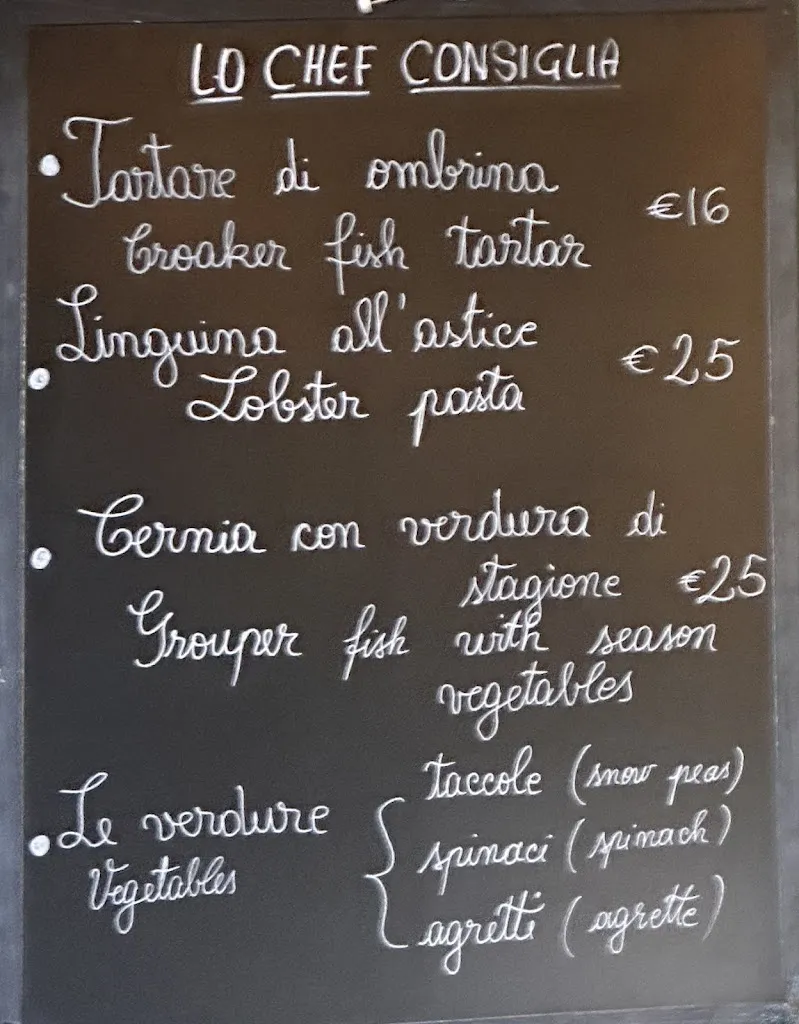 LO CHEF CONSIGLIA
• Tartare di ombrina
€16
Croaker fish tartar
• Linguina all'astice
€25
Lobster pasta
• Cernia con verdura di
stagione €25
Grouper fish with season
vegetables
• Le verdure
Vegetables
taccole (snow peas)
spinaci (spinach)
agretti (agrette)